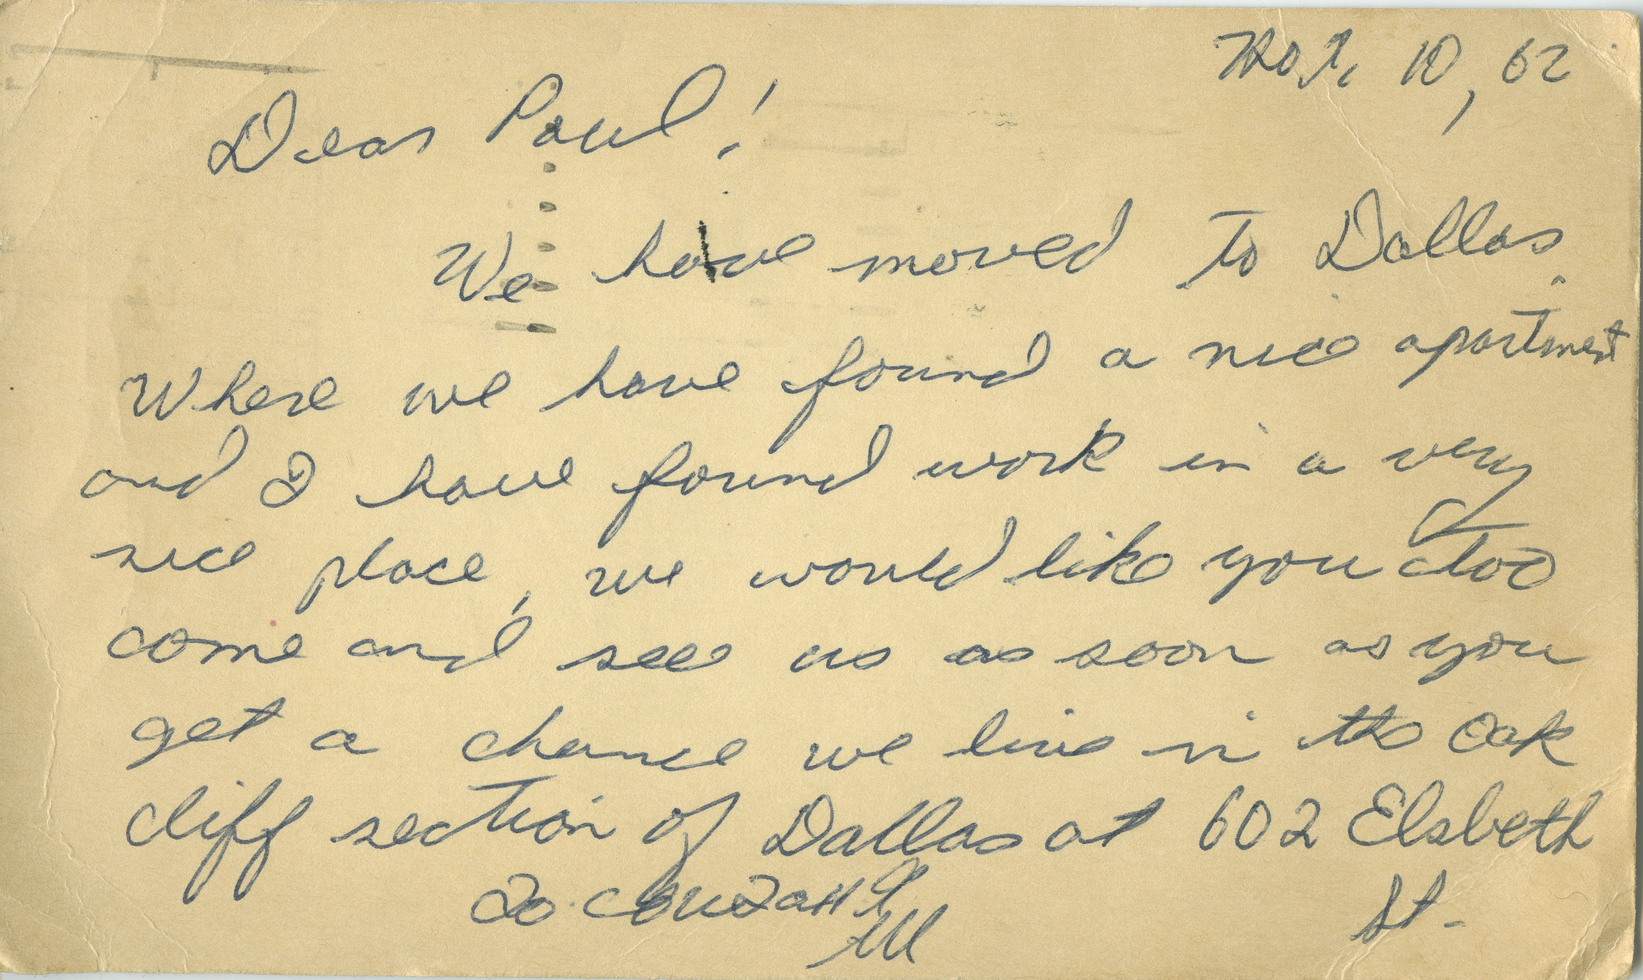 Nov. 10, 62
Dear Paul!
We have moved to Dallas.
Where we have found a nice apartment
and I have found work in a very
nice place, we would like you too
come and see us as soon as you
get a chance we live in the Oak
cliff section of Dallas at 602 Elsbeth
St.